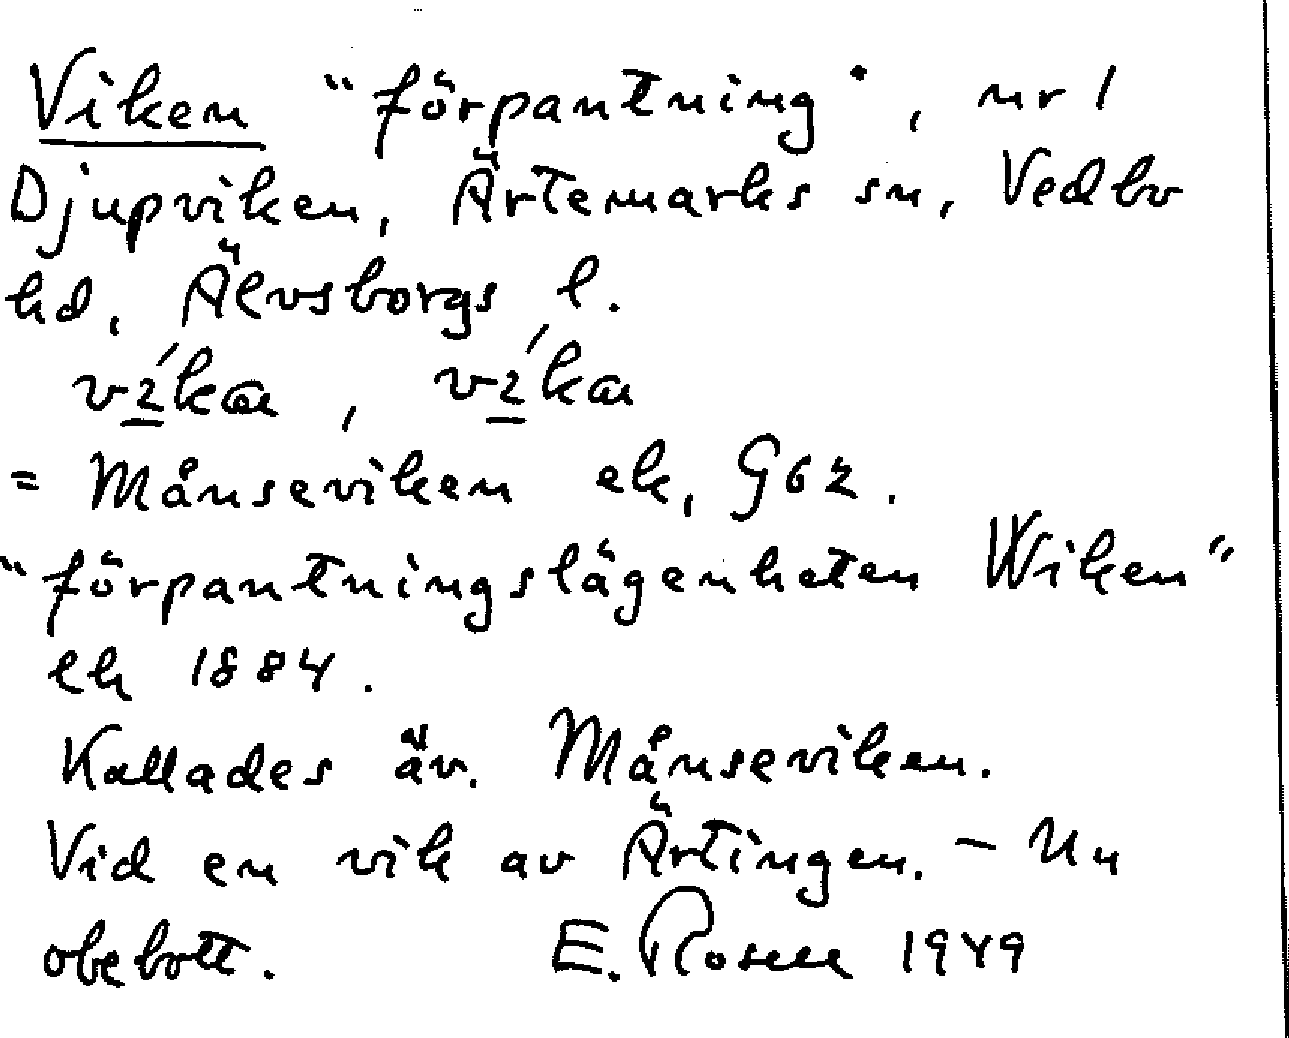 Viken "förpantning", nr 1
Djupviken, Ärtemarks sn, Vedbo
hd, Älvsborgs l.
= Månseviken ek, G62.
"förpantningslägenheten Wiken"
ek 1884.
Kallades äv. Månseviken.
Vid en vik av Ärtingen. – Nu
obebott. E. Rosell 1949